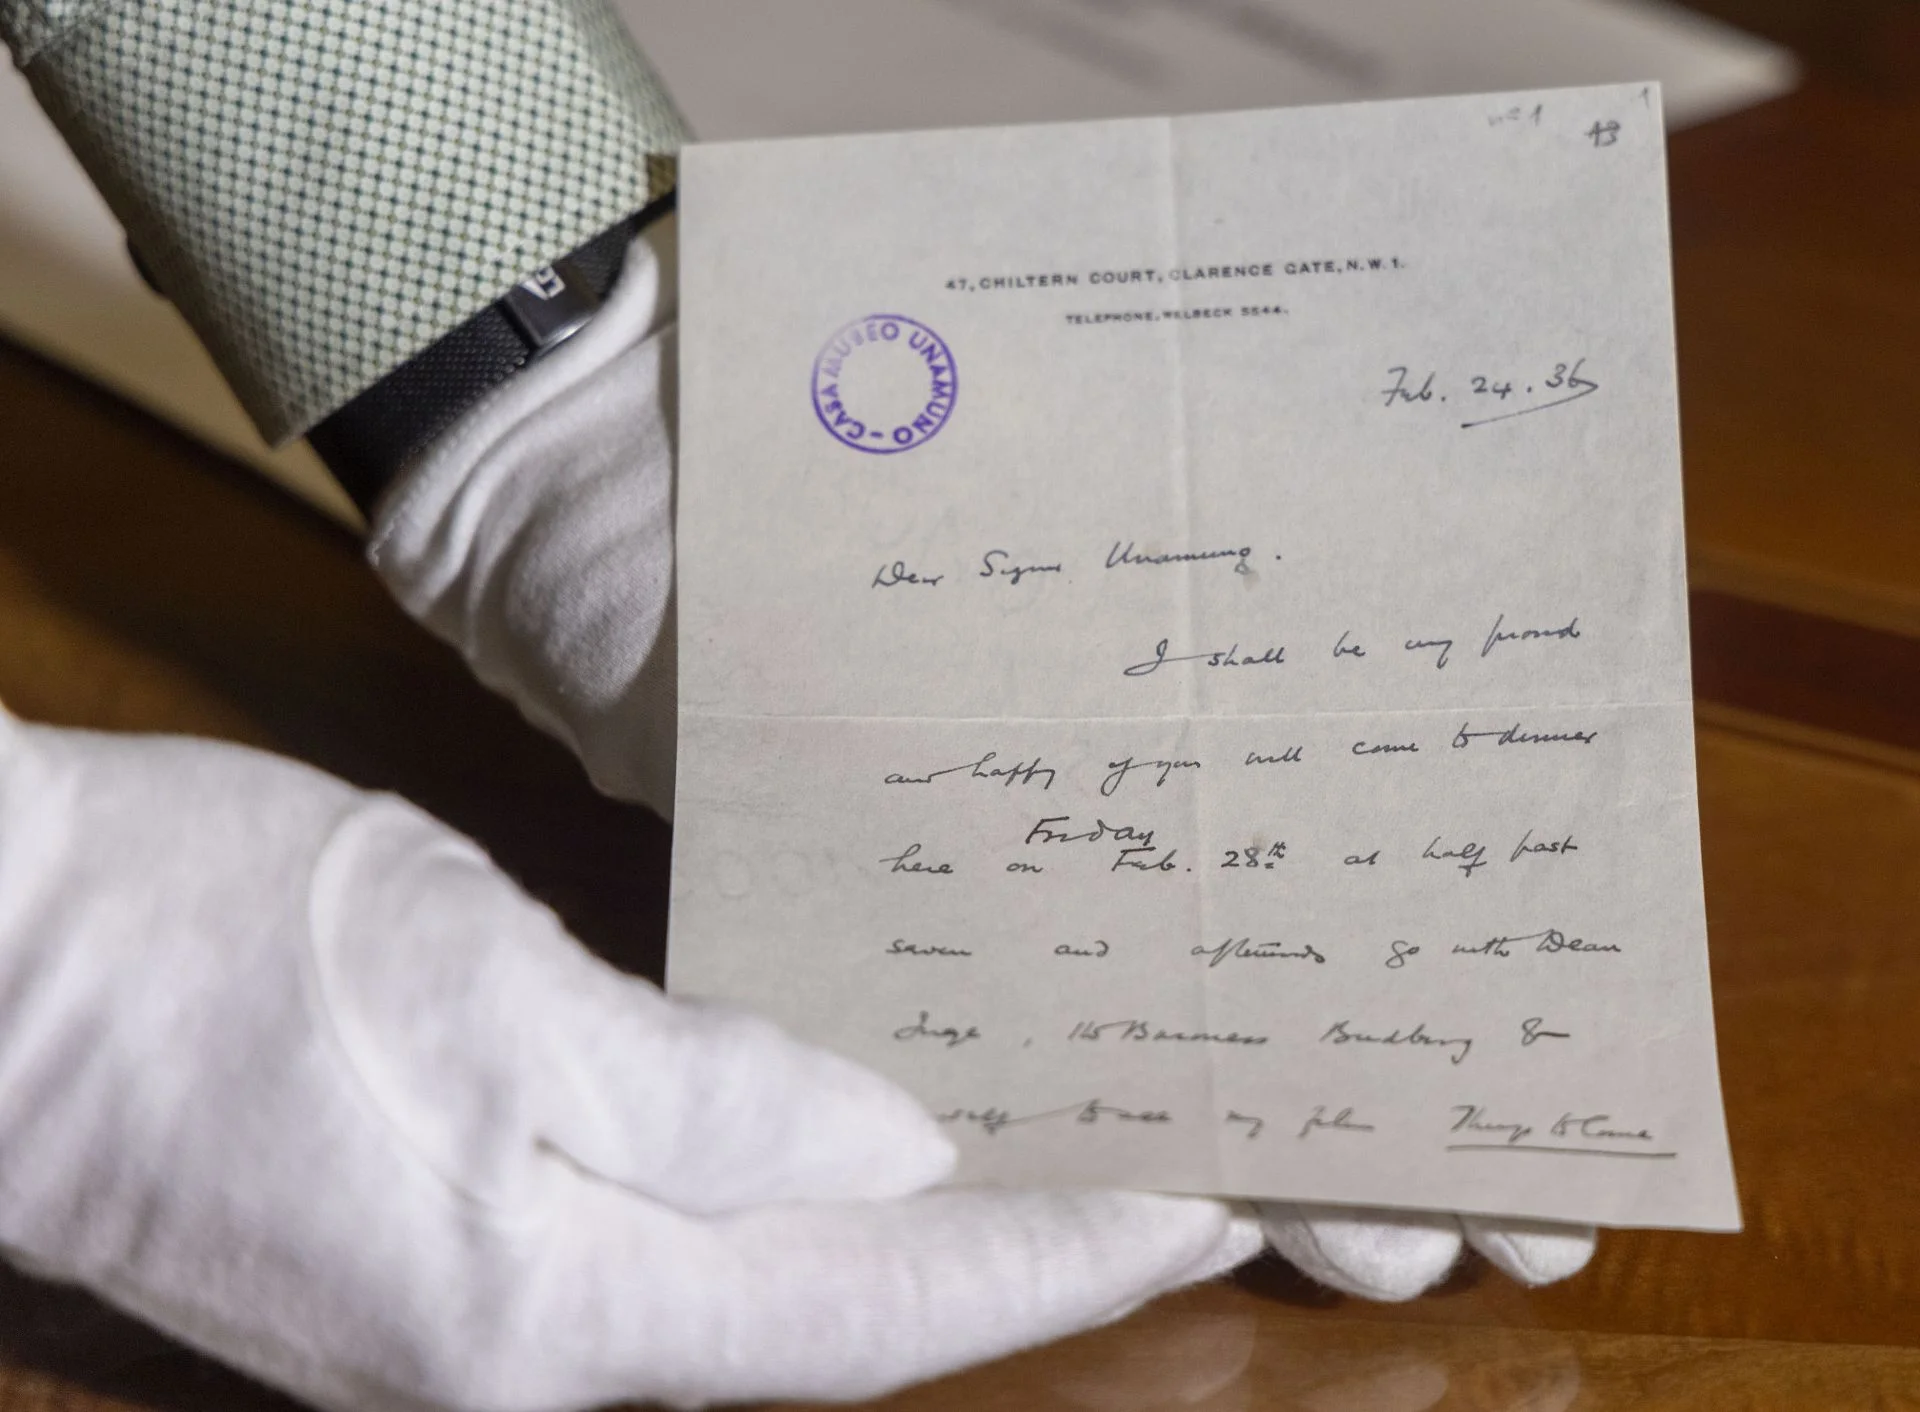 nº 1
1
43
47, CHILTERN COURT, CLARENCE GATE, N.W.1.
TELEPHONE, WELBECK 5544.
CASA MUSEO UNAMUNO -
Feb. 24. 36
Dear Signor Unamuno.
I shall be very proud
and happy if you will come to dinner
Friday
here on Feb. 28th at half past
seven and afterwards go with Dean
Inge, the Baroness Budberg &
myself to see my film Things to Come